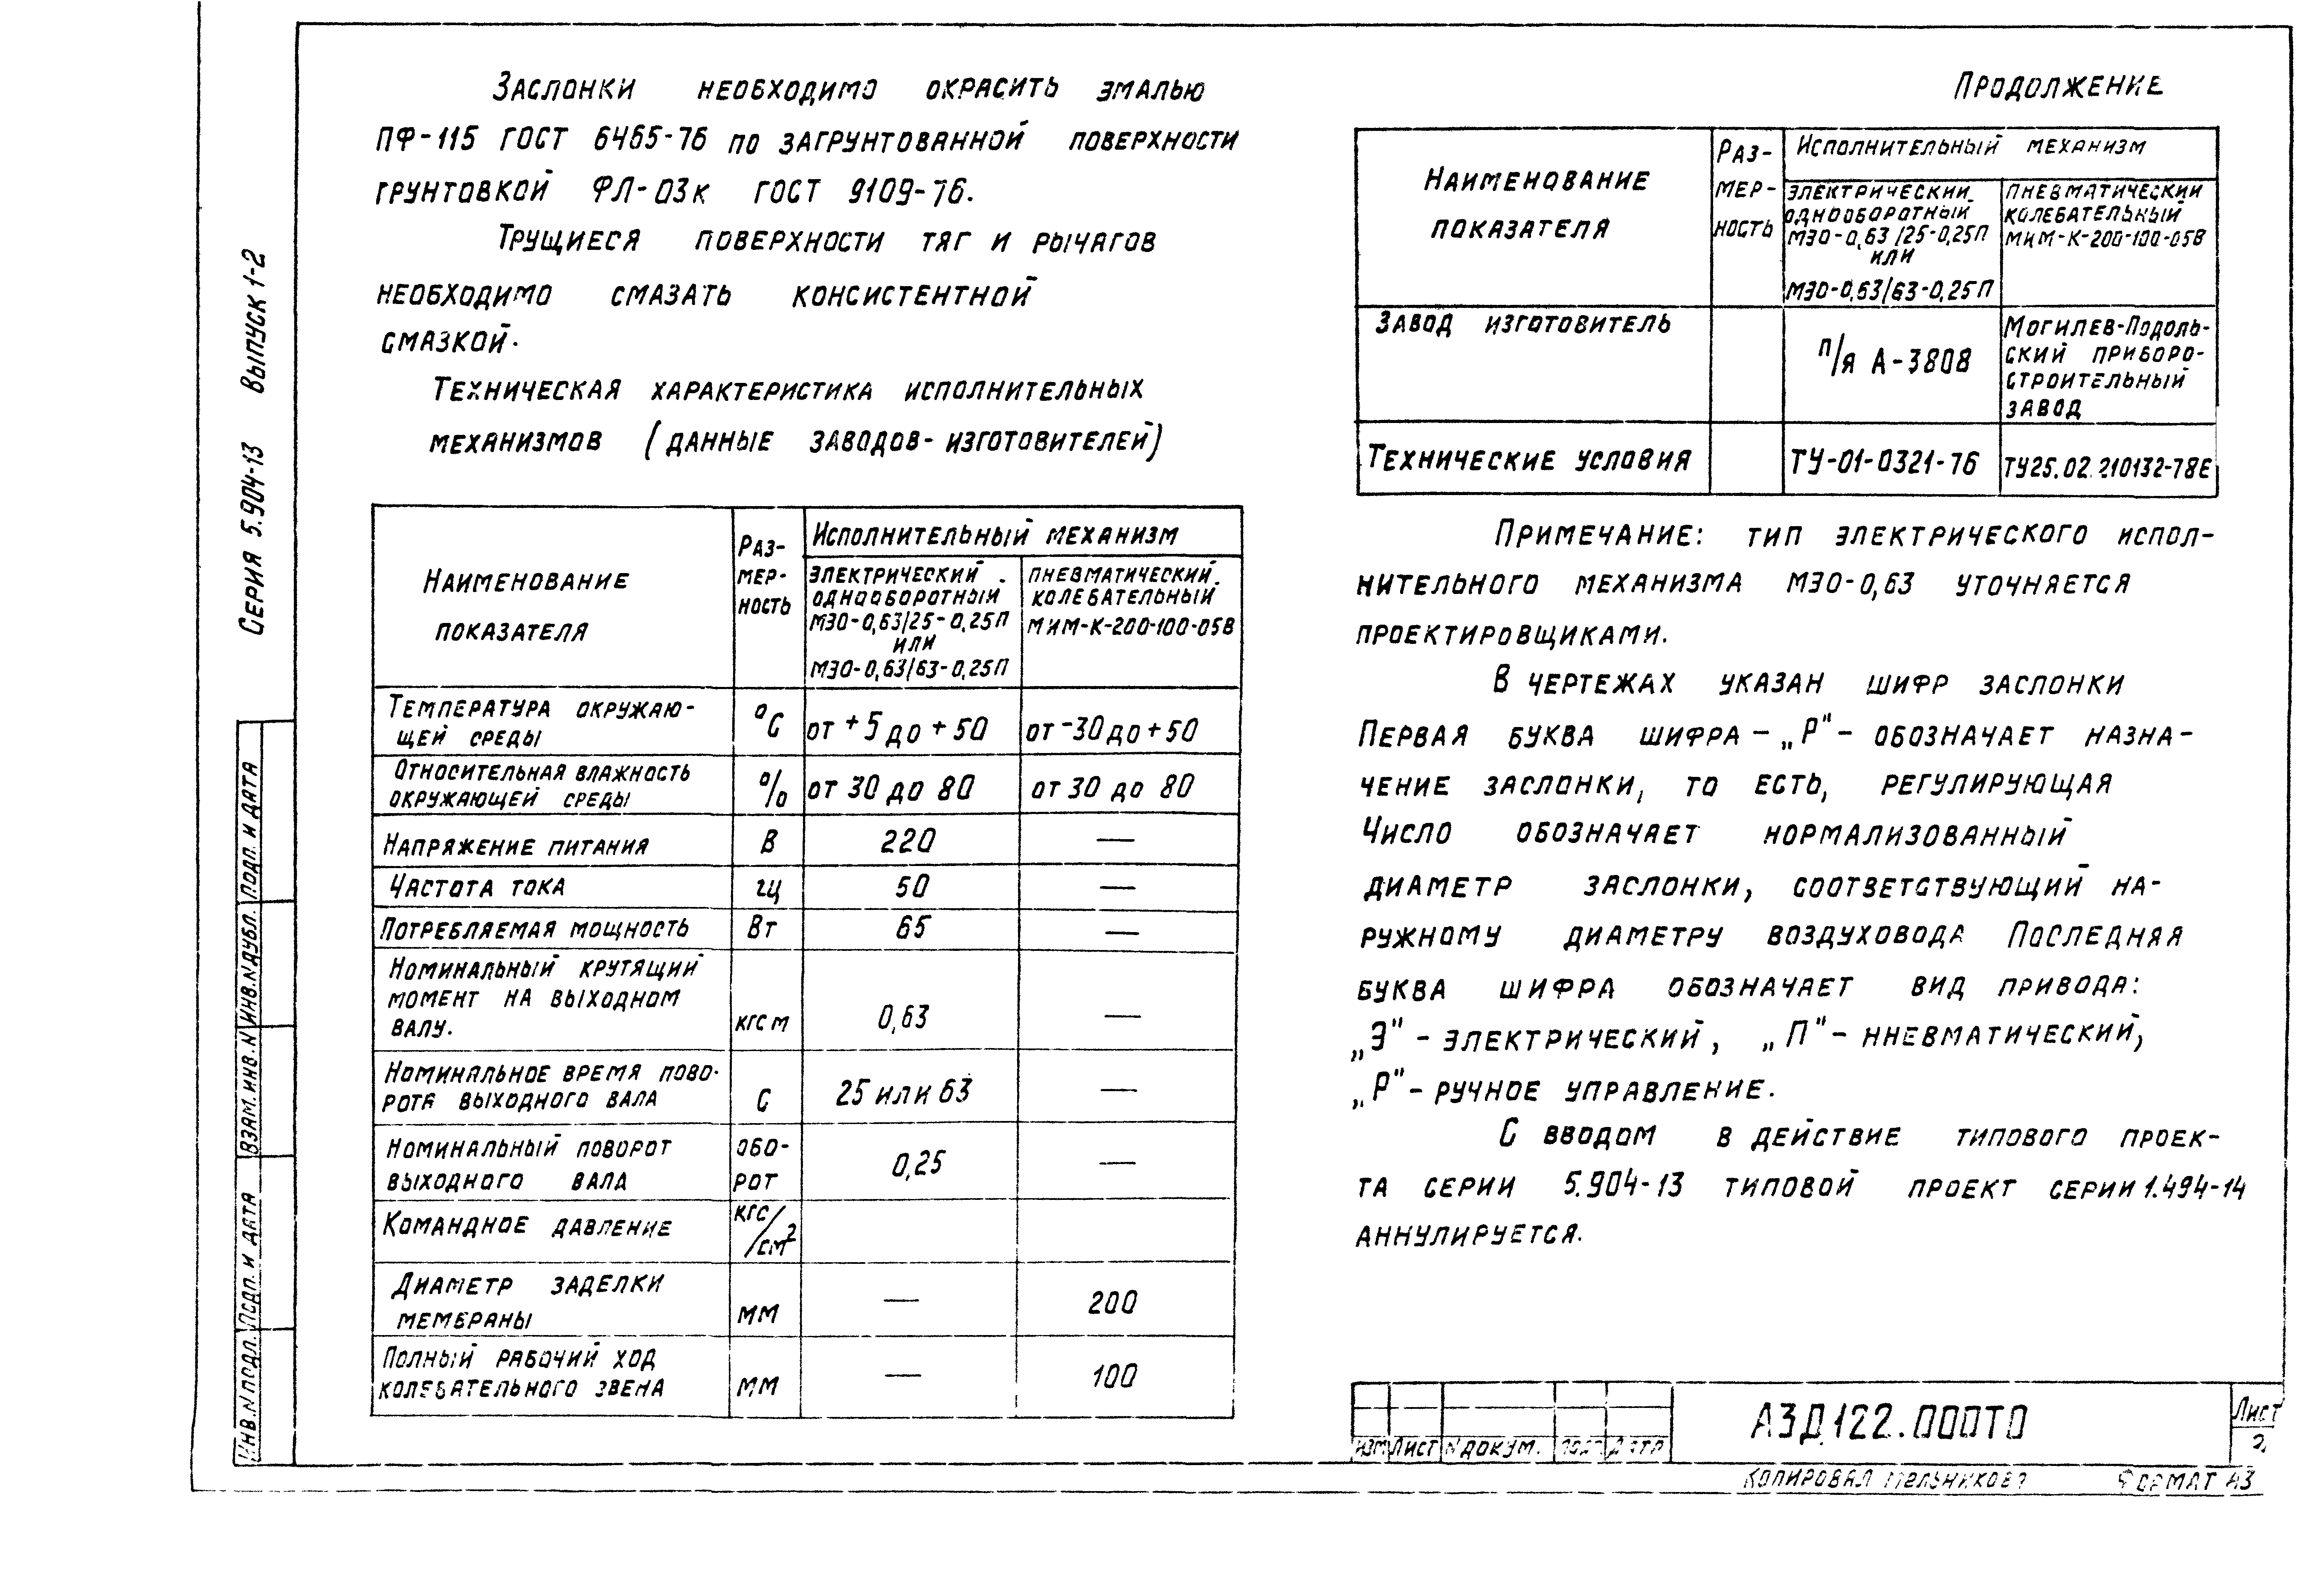 Заслонки необходимо окрасить эмалью
ПФ-115 ГОСТ 6465-76 по загрунтованной поверхности
грунтовкой ФЛ-03к ГОСТ 9109-76.
Трущиеся поверхности тяг и рычагов
необходимо смазать консистентной
смазкой.
Техническая характеристика исполнительных
механизмов (данные заводов-изготовителей)
Наименование
показателя
Раз-
мер-
ность
Исполнительный механизм
электрический
однооборотный
МЭО-0,63/25-0,25П
или
МЭО-0,63/63-0,25П
пневматический
колебательный
МИМ-К-200-100-05В
Температура окружаю-
щей среды
°С
от +5 до +50
от -30 до +50
Относительная влажность
окружающей среды
%
от 30 до 80
от 30 до 80
Напряжение питания
В
220
—
Частота тока
гц
50
—
Потребляемая мощность
Вт
65
—
Номинальный крутящий
момент на выходном
валу.
кгс м
0,63
—
Номинальное время пово-
рота выходного вала
С
25 или 63
—
Номинальный поворот
выходного вала
обо-
рот
0,25
—
Командное давление
кгс/
см²
Диаметр заделки
мембраны
мм
—
200
Полный рабочий ход
колебательного звена
мм
—
100
Продолжение
Наименование
показателя
Раз-
мер-
ность
Исполнительный механизм
электрический
однооборотный
МЭО-0,63/25-0,25П
или
МЭО-0,63/63-0,25П
пневматический
колебательный
МИМ-К-200-100-05В
Завод изготовитель
п/я А-3808
Могилев-Подоль-
ский приборо-
строительный
завод
Технические условия
ТУ-01-0321-76
ТУ25.02.210132-78Е
Примечание: тип электрического испол-
нительного механизма МЭО-0,63 уточняется
проектировщиками.
В чертежах указан шифр заслонки
Первая буква шифра - „Р" - обозначает назна-
чение заслонки, то есть, регулирующая
Число обозначает нормализованный
диаметр заслонки, соответствующий на-
ружному диаметру воздуховода Последняя
буква шифра обозначает вид привода:
„Э" - электрический, „П" - нневматический,
„Р" - ручное управление.
С вводом в действие типового проек-
та серии 5.904-13 типовой проект серии 1.494-14
аннулируется.
Серия 5.904-13 Выпуск 1-2
Подп. и дата
Инв.N дубл.
Взам.инв.N
Подп. и дата
Инв.N подл.
Изм Лист N докум. Подп. Дата
АЗД122.000ТО
Лист
2
Копировал Мельникова Формат А3